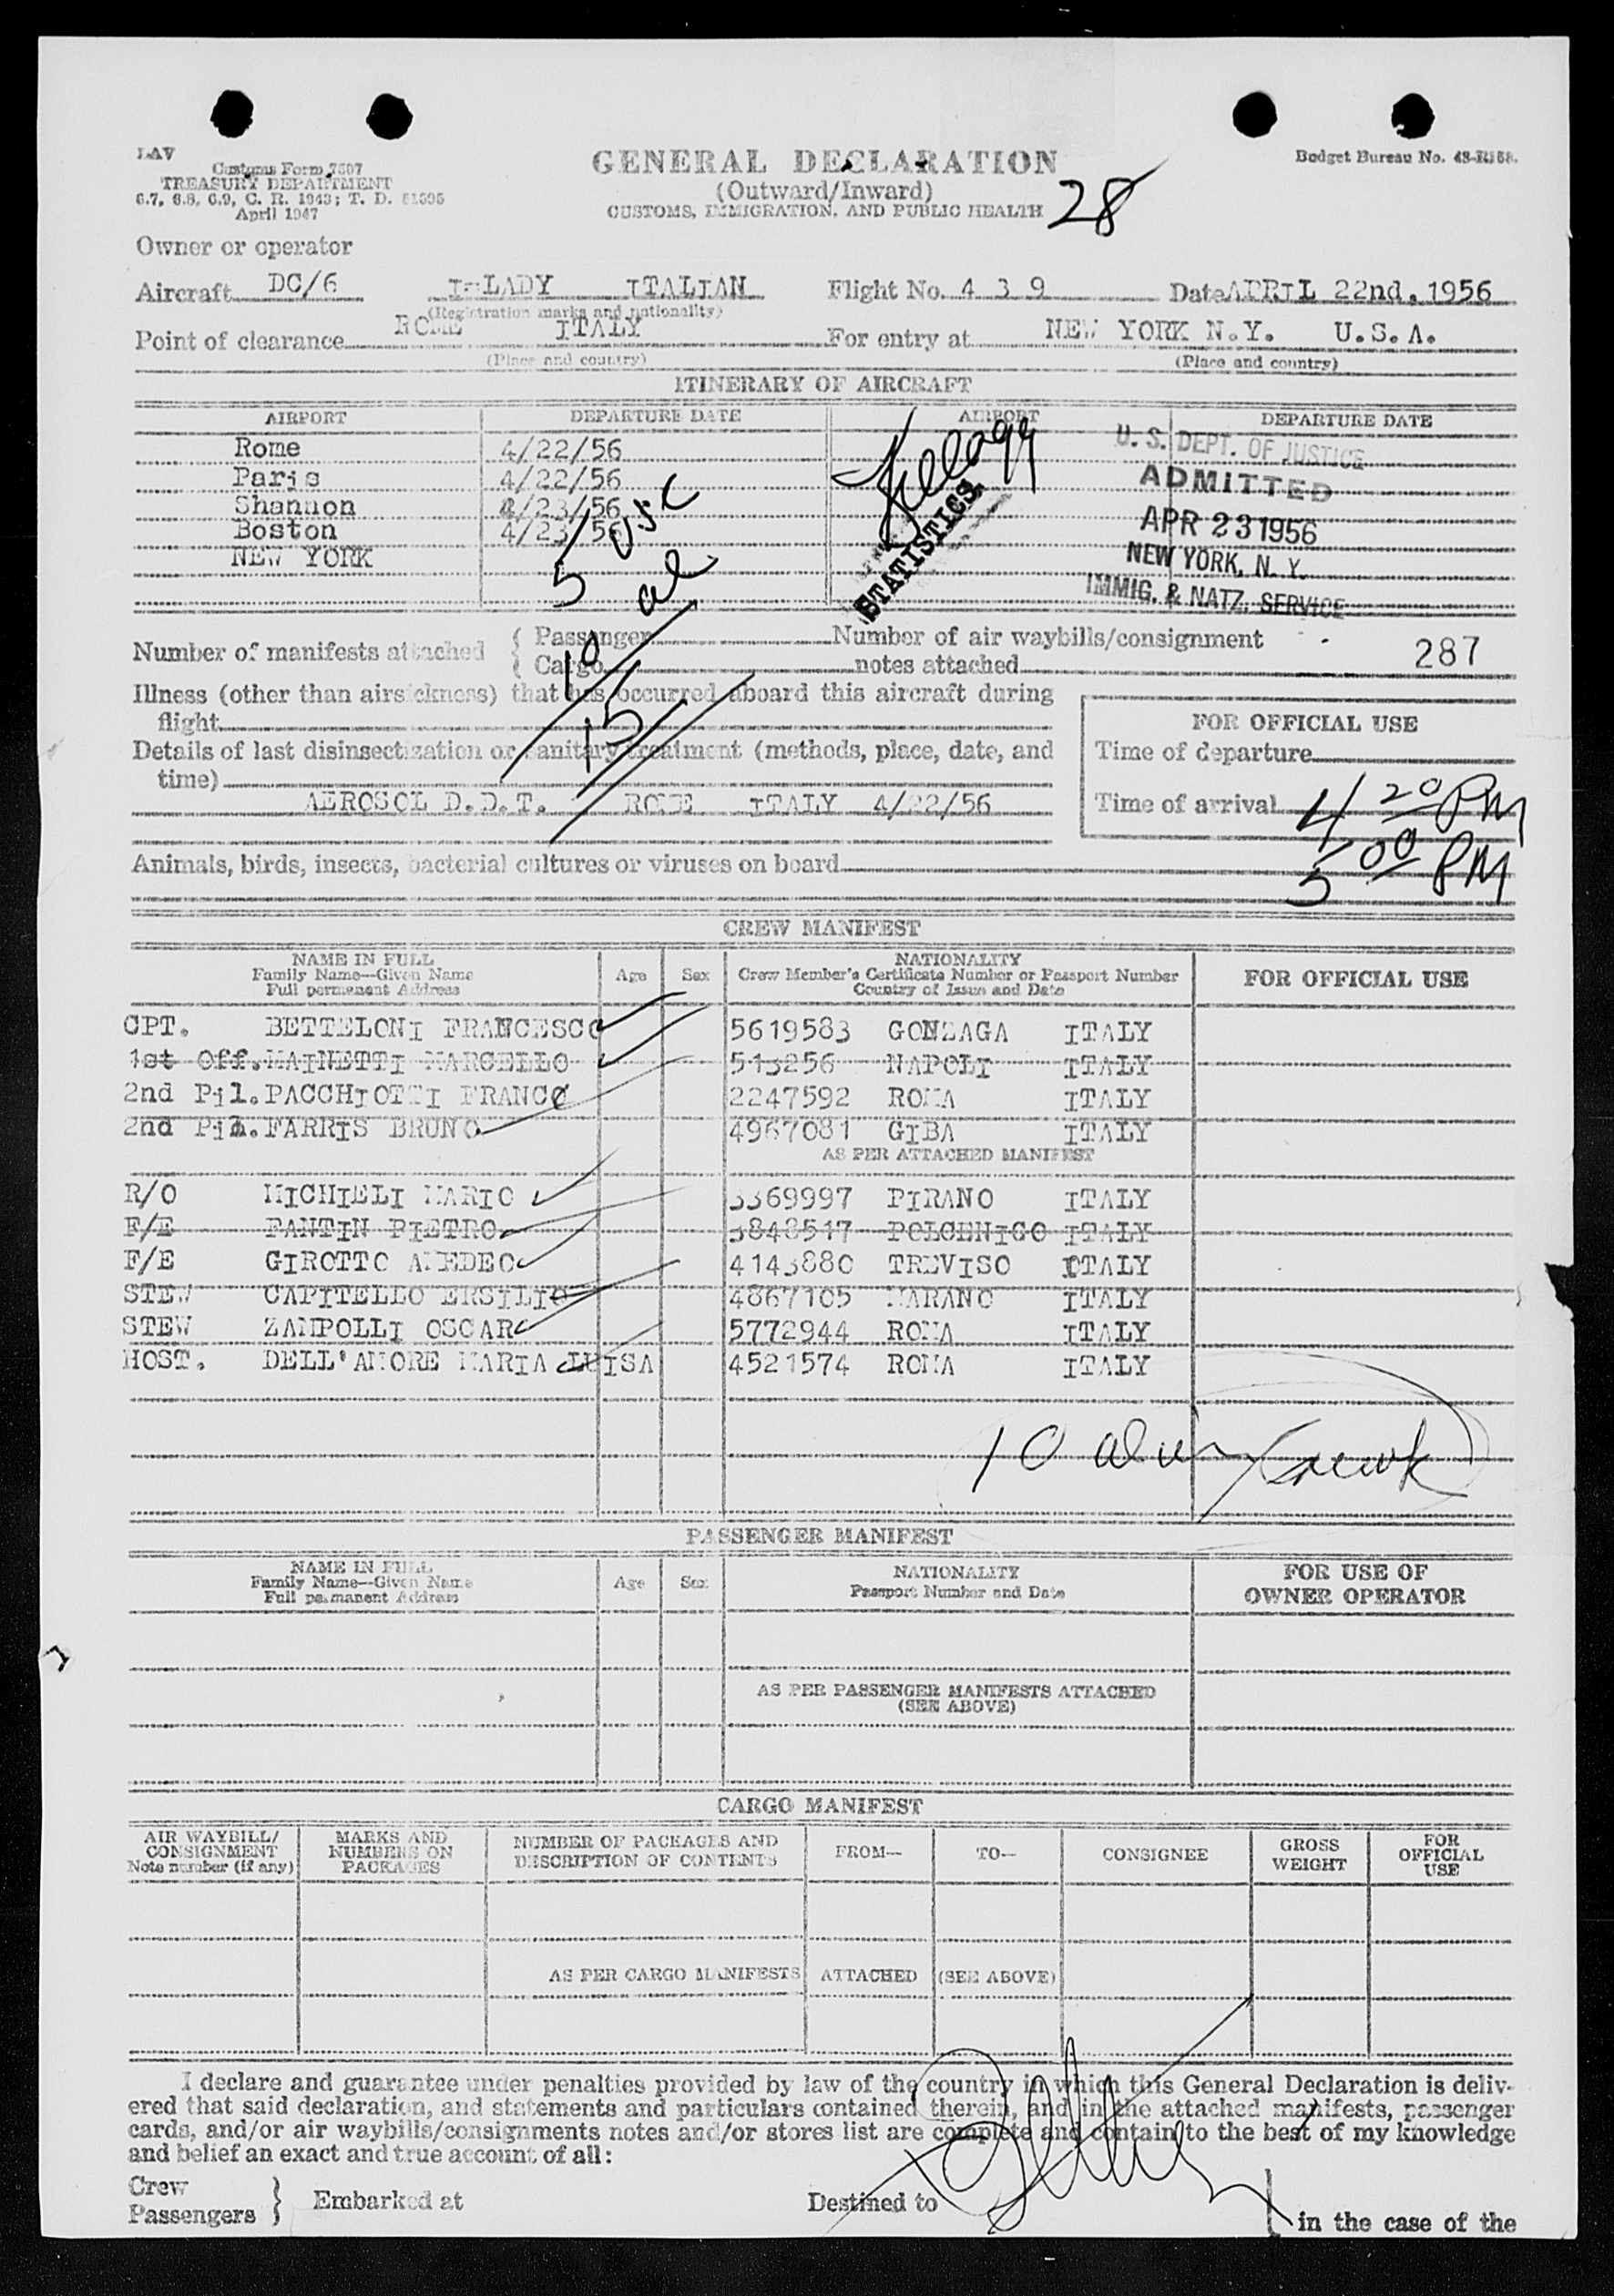 LAV
Customs Form 7507
TREASURY DEPARTMENT
6.7, 6.8, 6.9, C. R. 1943; T. D. 51595
April 1947
GENERAL DECLARATION
(Outward/Inward)
CUSTOMS, IMMIGRATION, AND PUBLIC HEALTH
28
Budget Bureau No.
Owner or operator
Aircraft DC/6 I-LADY ITALIAN Flight No. 4 3 9 Date APRIL 22nd, 1956
(Registration marks and nationality)
Point of clearance ROME ITALY For entry at NEW YORK N.Y. U.S.A.
(Place and country) (Place and country)
ITINERARY OF AIRCRAFT
AIRPORT DEPARTURE DATE AIRPORT DEPARTURE DATE
Rome 4/22/56
Paris 4/22/56
Shannon 4/23/56
Boston 4/23/56
NEW YORK
5 USC
10 al
15
Kellogg
STATISTICS
U. S. DEPT. OF JUSTICE
ADMITTED
APR 23 1956
NEW YORK, N. Y.
IMMIG. & NATZ. SERVICE
Number of manifests attached { Passenger Number of air waybills/consignment
{ Cargo notes attached
287
Illness (other than airsickness) that has occurred aboard this aircraft during
flight
Details of last disinsectization or sanitary treatment (methods, place, date, and
time)
AEROSOL D.D.T. ROME ITALY 4/22/56
FOR OFFICIAL USE
Time of departure
Time of arrival 4 20 PM
5 00 PM
Animals, birds, insects, bacterial cultures or viruses on board
CREW MANIFEST
NAME IN FULL
Family Name—Given Name
Full permanent Address
Age
Sex
NATIONALITY
Crew Member's Certificate Number or Passport Number
Country of Issue and Date
FOR OFFICIAL USE
CPT. BETTELONI FRANCESCO 5619583 GONZAGA ITALY
1st Off. MAINETTI MARCELLO 513256 NAPOLI ITALY
2nd Pil. PACCHIOTTI FRANCO 2247592 ROMA ITALY
2nd Pil. FARRIS BRUNO 4967081 GIBA ITALY
AS PER ATTACHED MANIFEST
R/O MICHIELI MARIO 3369997 PIRANO ITALY
F/E FANTIN PIETRO 3848517 POLCENIGO ITALY
F/E GIROTTO AMEDEO 4143880 TREVISO ITALY
STEW CAPITELLO ERSILIO 4867105 MARANO ITALY
STEW ZAMPOLLI OSCAR 5772944 ROMA ITALY
HOST. DELL'AMORE MARIA LUISA 4521574 ROMA ITALY
10 alien
PASSENGER MANIFEST
NAME IN FULL
Family Name—Given Name
Full permanent Address
Age
Sex
NATIONALITY
Passport Number and Date
FOR USE OF
OWNER OPERATOR
AS PER PASSENGER MANIFESTS ATTACHED
(SEE ABOVE)
CARGO MANIFEST
AIR WAYBILL/
CONSIGNMENT
Note number (if any)
MARKS AND
NUMBERS ON
PACKAGES
NUMBER OF PACKAGES AND
DESCRIPTION OF CONTENTS
FROM—
TO—
CONSIGNEE
GROSS
WEIGHT
FOR
OFFICIAL
USE
AS PER CARGO MANIFESTS ATTACHED (SEE ABOVE)
I declare and guarantee under penalties provided by law of the country in which this General Declaration is deliv-
ered that said declaration, and statements and particulars contained therein, and in the attached manifests, passenger
cards, and/or air waybills/consignments notes and/or stores list are complete and contain to the best of my knowledge
and belief an exact and true account of all:
Crew
Passengers } Embarked at Destined to in the case of the